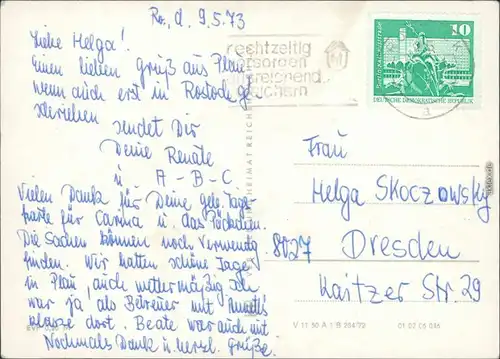 Ro, d. 9.5.73
Liebe Helga!
Einen lieben Gruß aus Plau
wenn auch erst in Rostock ge-
schrieben
sendet Dir
Deine Renate
u A-B-C
Vielen Dank für Deine
karte für Carina u das Päckchen.
Die Sachen können noch Verwendg
finden. Wir hatten schöne Tage
in Plau, auch wettermäßig. Ich
war ja als Betreuer mit
klasse dort. Beate war auch mit
Nochmals Dank u herzl. Grüße.
rechtzeitig
vorsorgen
ausreichend
10
DEUTSCHE DEMOKRATISCHE REPUBLIK
Frau
Helga Skoczowsky
8027 Dresden
Kaitzer Str. 29
HEIMAT REICH
V 11 50 A 1 B 204/72 01 02 08 045